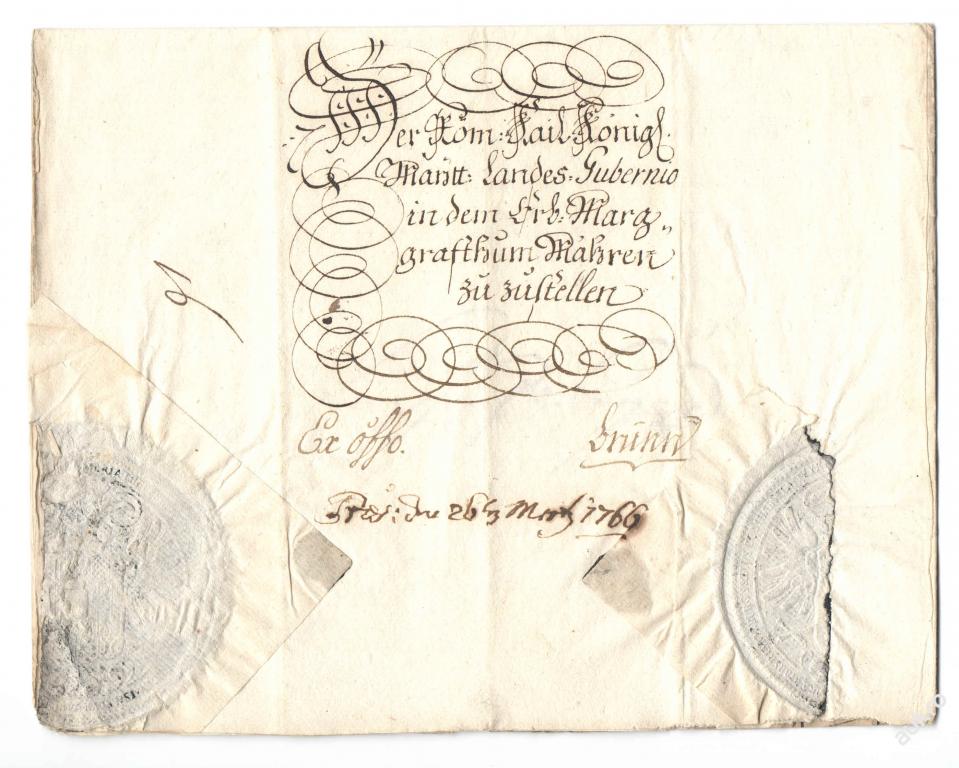 Der Röm: Kaiſ. Königl.
Maÿtt: Landes-Gubernio
in dem Erb-Marg„
grafthum Mähren
zu zuſtellen
Ex offo.
Brünn
Præs: den 26 Martz 1766